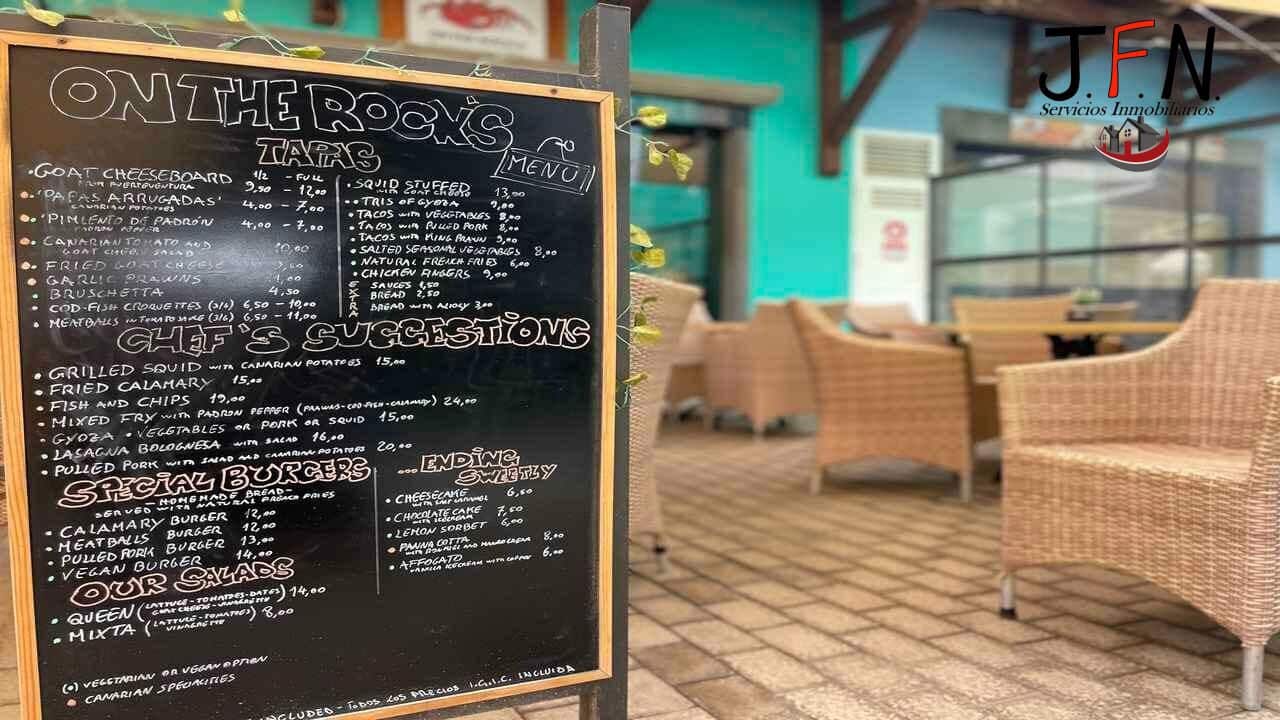 ON THE ROCK'S
TAPAS
MENÙ
GOAT CHEESEBOARD 1/2 - FULL
FROM FUERTEVENTURA 9,50 - 12,00
'PAPAS ARRUGADAS' 4,00 - 7,00
CANARIAN POTATOES
'PIMIENTO DE PADRÓN 4,00 - 7,00
PADRON PEPPER
CANARIAN TOMATO AND 10,00
GOAT CHEESE SALAD
FRIED GOAT CHEESE
GARLIC PRAWNS
BRUSCHETTA 4,50
COD-FISH CROQUETTES (3/6) 6,50 - 10,00
MEATBALLS IN TOMATO SAUCE (3/6) 6,50 - 11,00
SQUID STUFFED 13,00
WITH GOAT CHEESE
TRIS OF GYOZA 9,00
TACOS WITH VEGETABLES 8,00
TACOS WITH PULLED PORK 8,00
TACOS WITH KING PRAWN 9,00
SALTED SEASONAL VEGETABLES 8,00
NATURAL FRENCH FRIES 6,00
CHICKEN FINGERS 9,00
EXTRA
SAUCES 1,50
BREAD 2,50
BREAD WITH ALIOLY 3,00
CHEF'S SUGGESTIONS
GRILLED SQUID WITH CANARIAN POTATOES 15,00
FRIED CALAMARY 15,00
FISH AND CHIPS 19,00
MIXED FRY WITH PADRON PEPPER (PRAWNS-COD-FISH-CALAMARY) 24,00
GYOZA • VEGETABLES OR PORK OR SQUID 15,00
LASAGNA BOLOGNESA WITH SALAD 16,00
PULLED PORK WITH SALAD AND CANARIAN POTATOES 20,00
SPECIAL BURGERS
HOMEMADE BREAD-
SERVED WITH NATURAL FRENCH FRIES
CALAMARY BURGER 12,00
MEATBALLS BURGER 12,00
PULLED PORK BURGER 13,00
VEGAN BURGER 14,00
...ENDING SWEETLY
CHEESECAKE 6,50
WITH SALT CARAMEL
CHOCOLATE CAKE 7,50
WITH ICECREAM
LEMON SORBET 6,00
PANNA COTTA 8,00
AFFOGATO 6,00
VANILLA ICECREAM WITH COFFEE
OUR SALADS
QUEEN (LATTUCE-TOMATOES-DATES 14,00
GOAT CHEESE-VINAGRETTE)
MIXTA (LATTUCE-TOMATOES) 8,00
VINAGRETTE
(•) VEGETARIAN OR VEGAN OPTION
CANARIAN SPECIALITIES
INCLUDED - TODOS LOS PRECIOS I.G.I.C. INCLUIDA
J.F.N.
Servicios Inmobiliarios